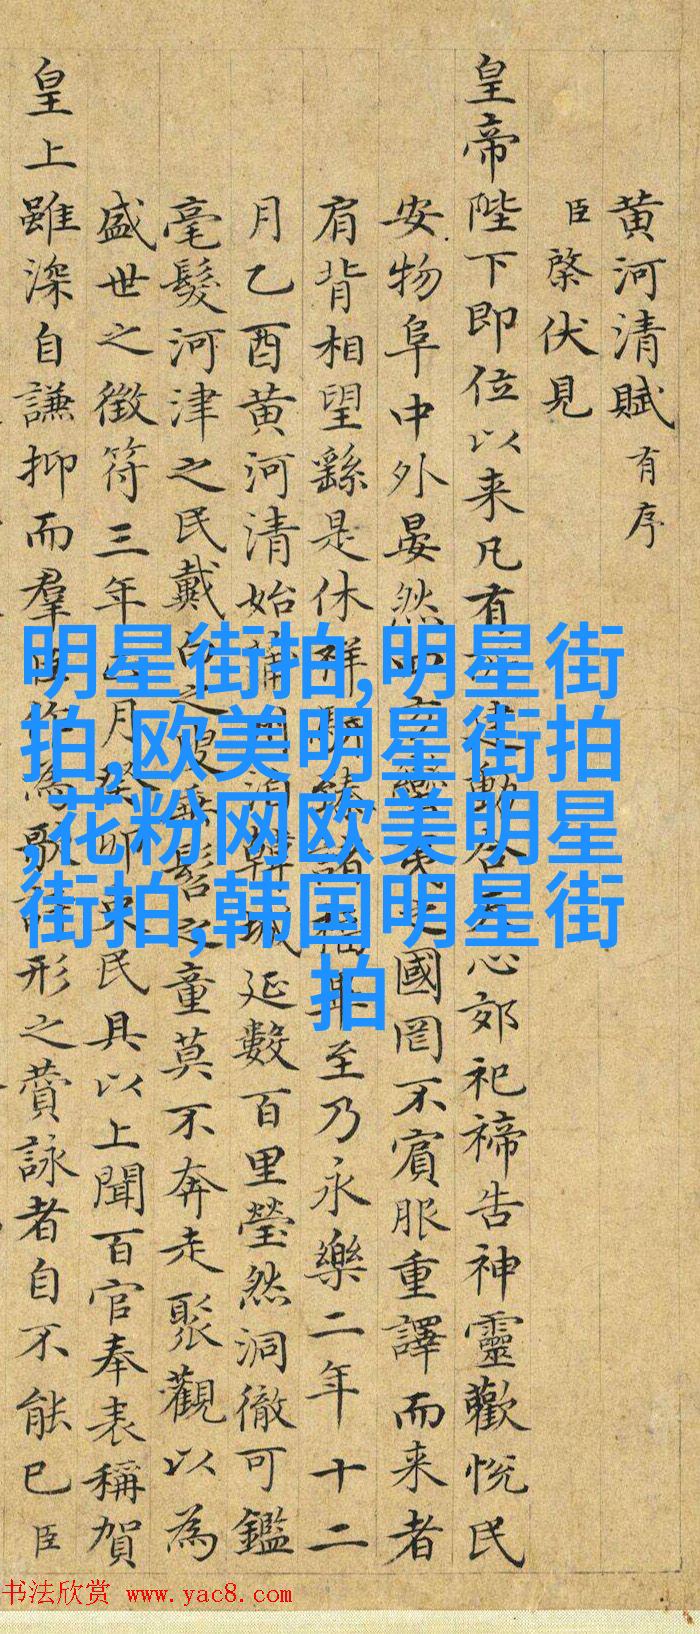 黄河清賦 有序
臣棨伏見
皇帝陛下即位以来凡有建動合心郊祀禘告神靈歡悦民
安物阜中外晏然四方蠻夷之國罔不賓服重譯而来者
肩背相望繇是休祥駢臻諸福畢至乃永樂二年十二
月乙酉黄河清始蒲韓城延數百里瑩然洞徹可鑑
毫髮河津之民戴白之叟垂髫之童莫不奔走聚觀以為
盛世之徵符三年正月癸卯吏民具以上聞百官奉表稱賀
皇上雖深自謙抑而羣臣作為歌詩形之賛詠者自不能已臣
明星街拍,明星街
拍,欧美明星街拍
,花粉网欧美明星
街拍,韩国明星街
拍
书法欣赏 www.yac8.com